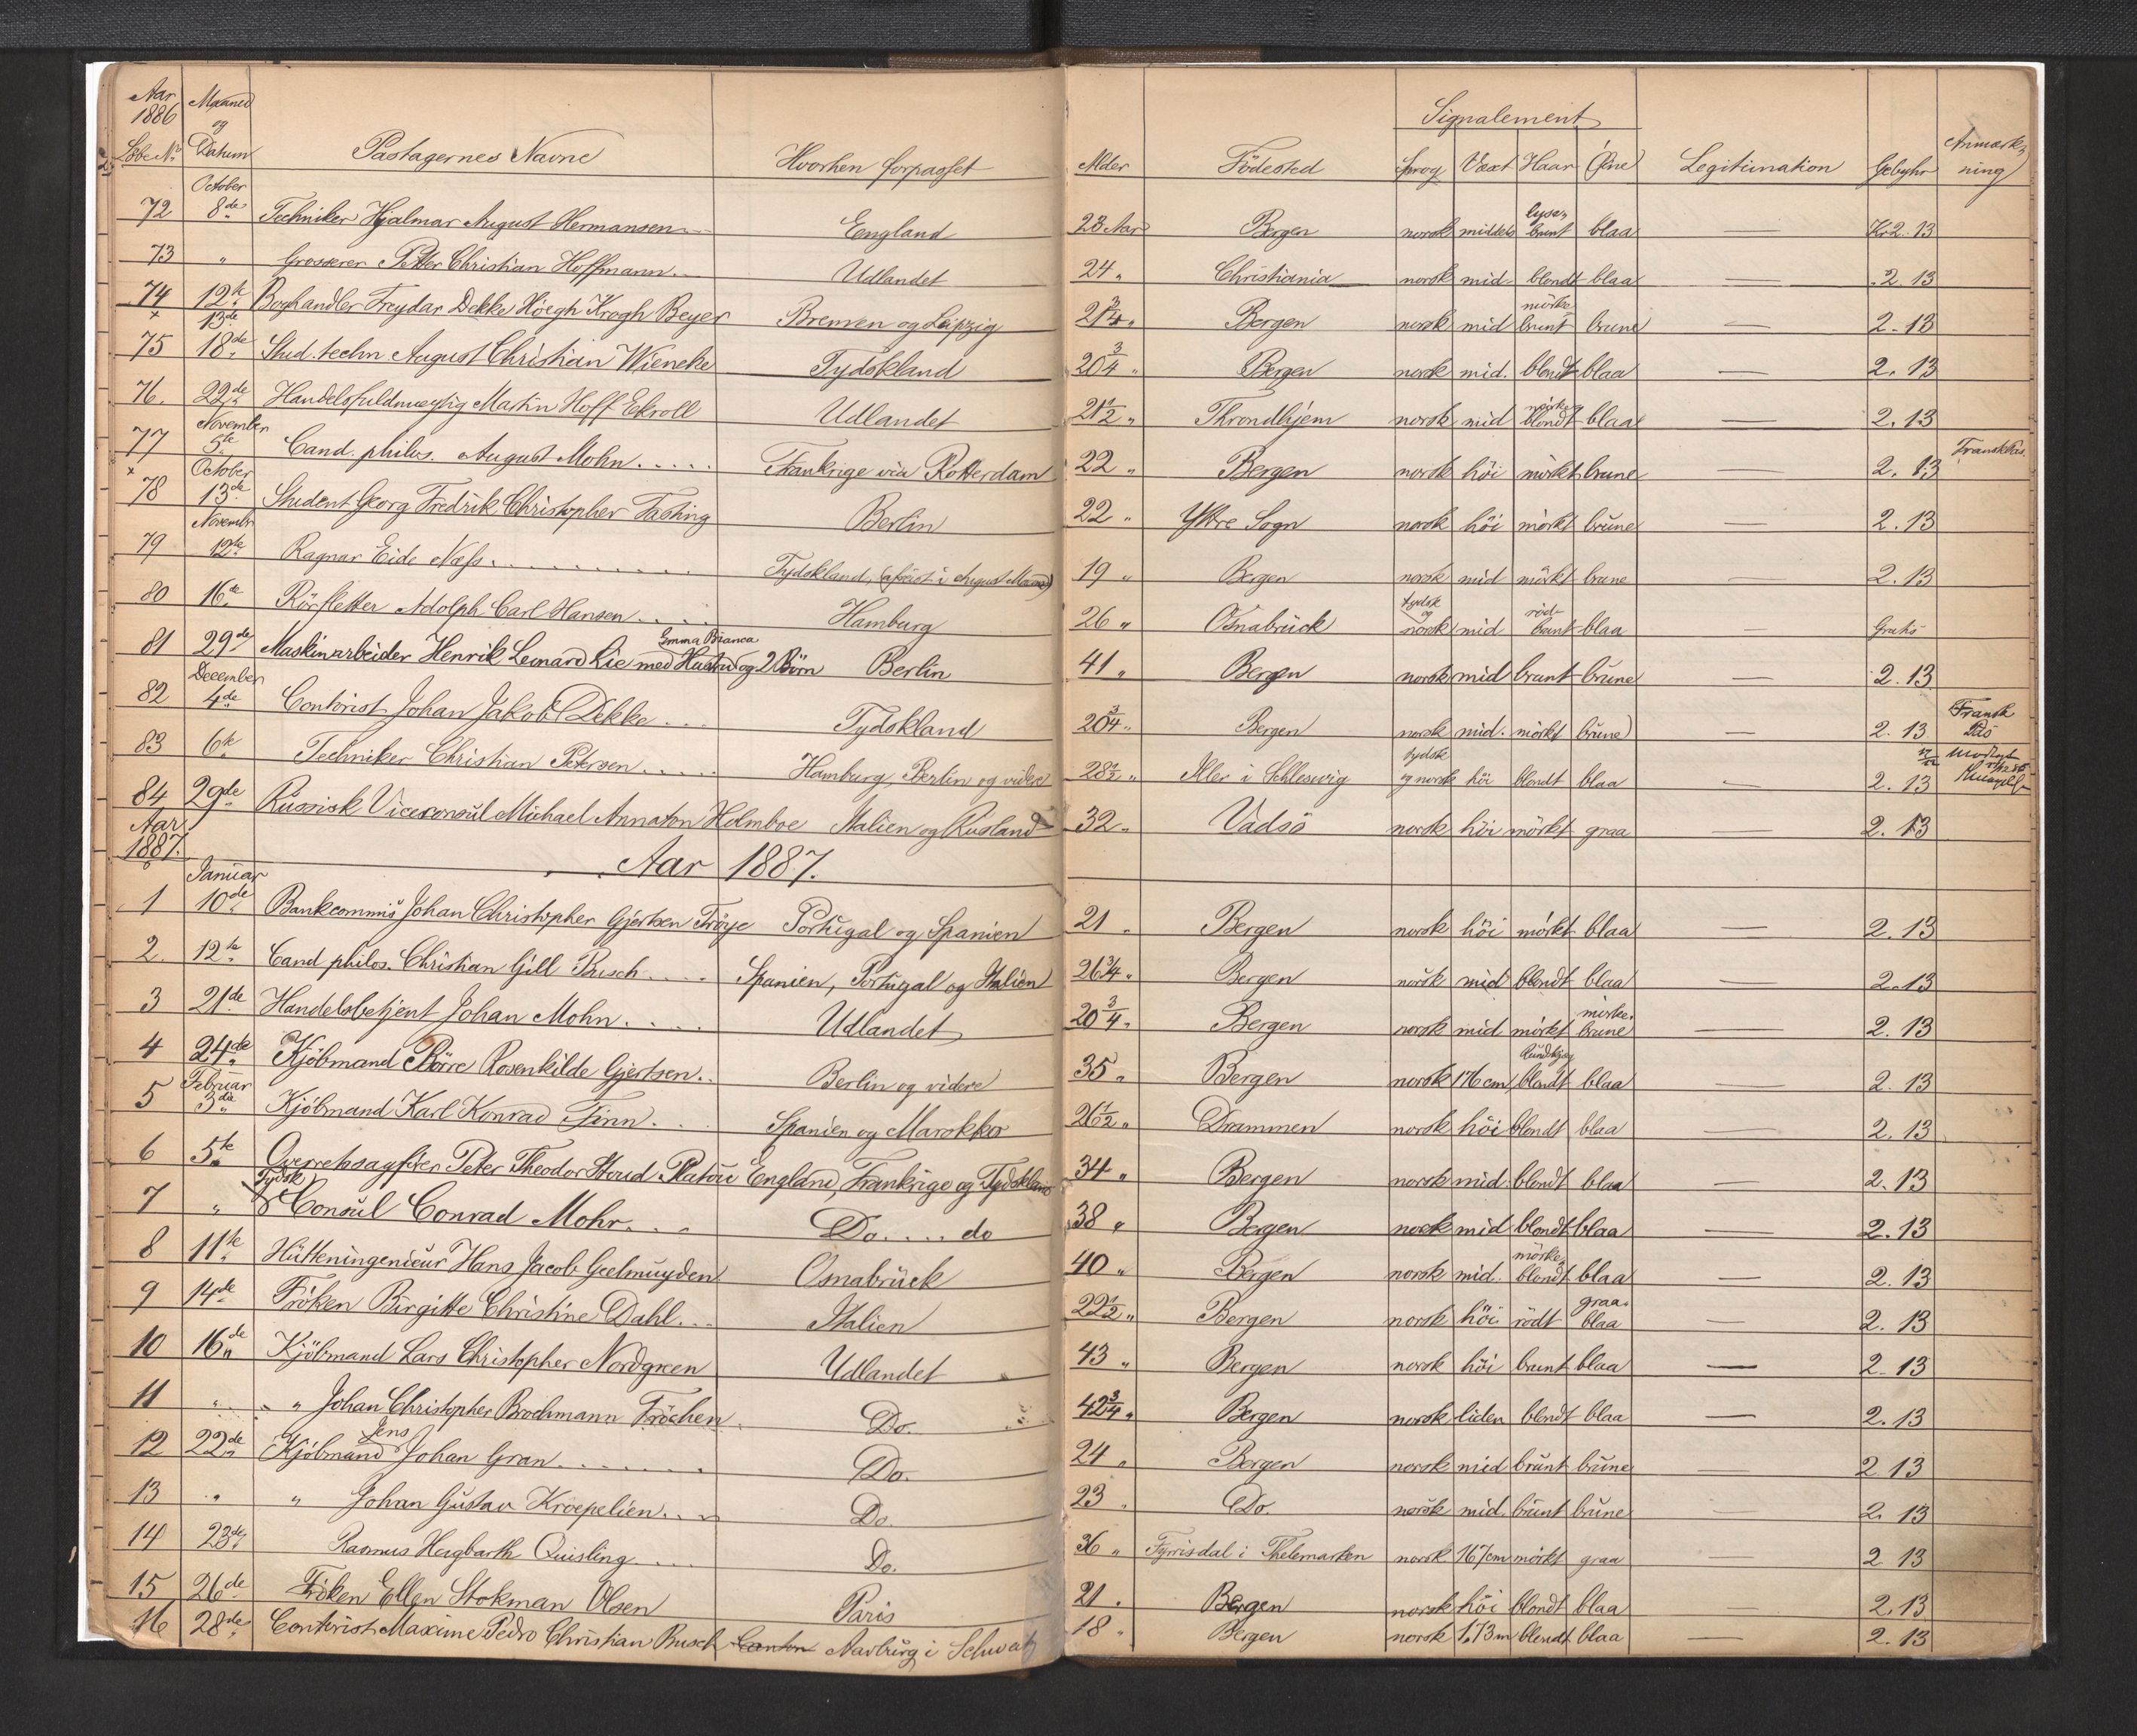 Aar 1886 Maaned og Datum Signalement
Löbe No. Pastagernes Navne Hvorhen forpasset Alder Födested Sprog Vext Haar Öine Legitimation Gebyhr Anmærkning
October
72 8de Techniker Hjalmar August Hermansen England 23 Aar Bergen norsk middels lysebrunt blaa — Kr 2.13
73 " Grosserer Petter Christian Hoffmann Udlandet 24 " Christiania norsk mid. blondt blaa — 2.13
74 12te Boghandler Freydar Dekke Höegh Krogh Beyer Bremen og Leipzig 21 3/4 " Bergen norsk mid mörkebrunt brune — 2.13
x 13de
75 18de Stud. techn. August Christian Wieneke Tydskland 20 3/4 " Bergen norsk mid. blondt blaa — 2.13
76. 22de Handelsfuldmægtig Martin Hoff Ekroll Udlandet 21 1/2 " Throndhjem norsk mid mörkeblondt blaa — 2.13
November
77 5te Cand. philos. August Mohn..... Frankrige via Rotterdam 22 " Bergen norsk höi mörkt brune — 2.13 Fransk Pas.
x October
78 13de Student Georg Fredrik Christopher Fasting Berlin 22 " Yttre Sogn norsk höi mörkt brune — 2.13
Novembr
79 12te Ragnar Eide Næss.......... Tydskland, (afreist i August Maaned) 19 " Bergen norsk mid mörkt brune — 2.13
80 16de Rörfletter Adolph Carl Hansen.... Hamburg 26 " Osnabrück tydsk og norsk mid rödbrunt blaa — Gratis
81 29de Maskinarbeider Henrik Leonard Lie med Hustru Emma Bianca og 2 Börn Berlin 41 " Bergen norsk mid brunt brune — 2.13
December
82 4de Contorist Johan Jakob Dekke... Tydskland 20 3/4 " Bergen norsk mid. mörkt brune — 2.13 Fransk Pas
83 6te Techniker Christian Petersen..... Hamburg, Berlin og videre 28 1/2 " Iller i Schleswig tydsk og norsk höi blondt blaa — 2.13
84 29de Russisk Viceconsul Michael Annaton Holmboe Italien og Rusland 32 " Vadsö norsk höi mörkt graa — 2.13
Aar 1887.
Aar 1887.
Januar
1 10de Bankcommis Johan Christopher Gjertsen Fröye Portugal og Spanien 21 " Bergen norsk höi mörkt blaa — 2.13
2. 12te Cand philos. Christian Gill Busch.... Spanien, Portugal og Italien 26 3/4 " Bergen norsk mid blondt blaa — 2.13
3 21de Handelsbetjent Johan Mohn..... Udlandet 20 3/4 " Bergen norsk mid mörkt mörkebrune — 2.13
4 24de Kjöbmand Börre Rosenkilde Gjertsen.. Berlin og videre 35 " Bergen norsk 176 cm blondt blaa — 2.13
Februar
5 3die Kjöbmand Karl Konrad Finn... Spanien og Marokko 26 1/2 " Drammen norsk höi blondt blaa — 2.13
6 5te Overretssagförer Peter Theodor Stoud Platou England, Frankrige og Tydskland 34 " Bergen norsk mid. blondt blaa — 2.13
7 " Tydsk Consul Conrad Mohr.... Do.... do 38 " Bergen norsk mid blondt blaa — 2.13
8 11te Hütteningenieur Hans Jacob Geelmuyden Osnabrück 40 " Bergen norsk mid. mörkeblondt blaa — 2.13
9 14de Fröken Birgitte Christine Dahl... Italien 22 1/2 " Bergen norsk höi rödt graablaa — 2.13
10 16de Kjöbmand Lars Christopher Nordgreen Udlandet 43 " Bergen norsk höi brunt blaa — 2.13
11 " " Johan Christopher Brochmann Fröchen Do. 42 3/4 " Bergen norsk liden blondt blaa — 2.13
12 22de Kjöbmand Jens Johan Gran....... Do. 24 " Bergen norsk mid brunt brune — 2 13
13 " " Johan Gustav Kroepelien... Do. 23 " Do. norsk mid. brunt brune — 2.13
14 23de Rasmus Hagbarth Quisling.... Do. 36 " Fyrrisdal i Thelemarken norsk 167cm mörkt graa — 2 13
15 26de Fröken Ellen Stokman Olsen Paris 21 " Bergen norsk höi blondt blaa — 2.13
16 28de Contorist Maxime Pedro Christian Busch Canton Aarburg i Schweitz 18 " Bergen norsk 1,73m blondt blaa — 2.13